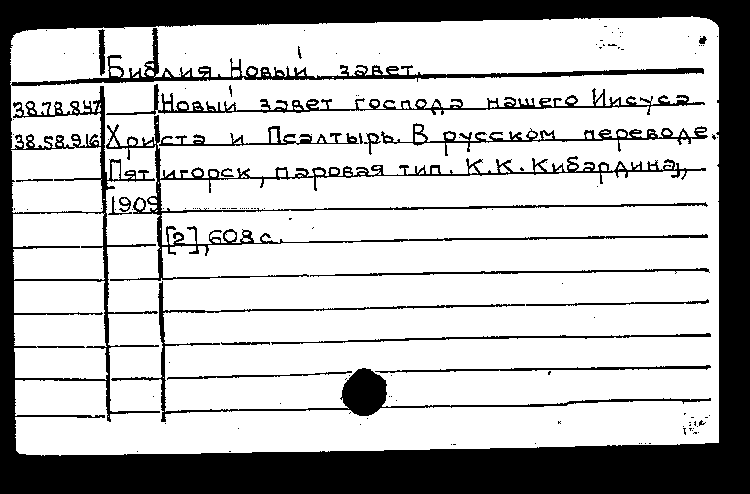 Библия. Новый завет.
38.78.847 Новый завет господа нашего Иисуса
38.58.916 Христа и Псалтырь. В русском переводе.
[Пятигорск, паровая тип. К.К. Кибардина],
1909.
[2], 608 с.